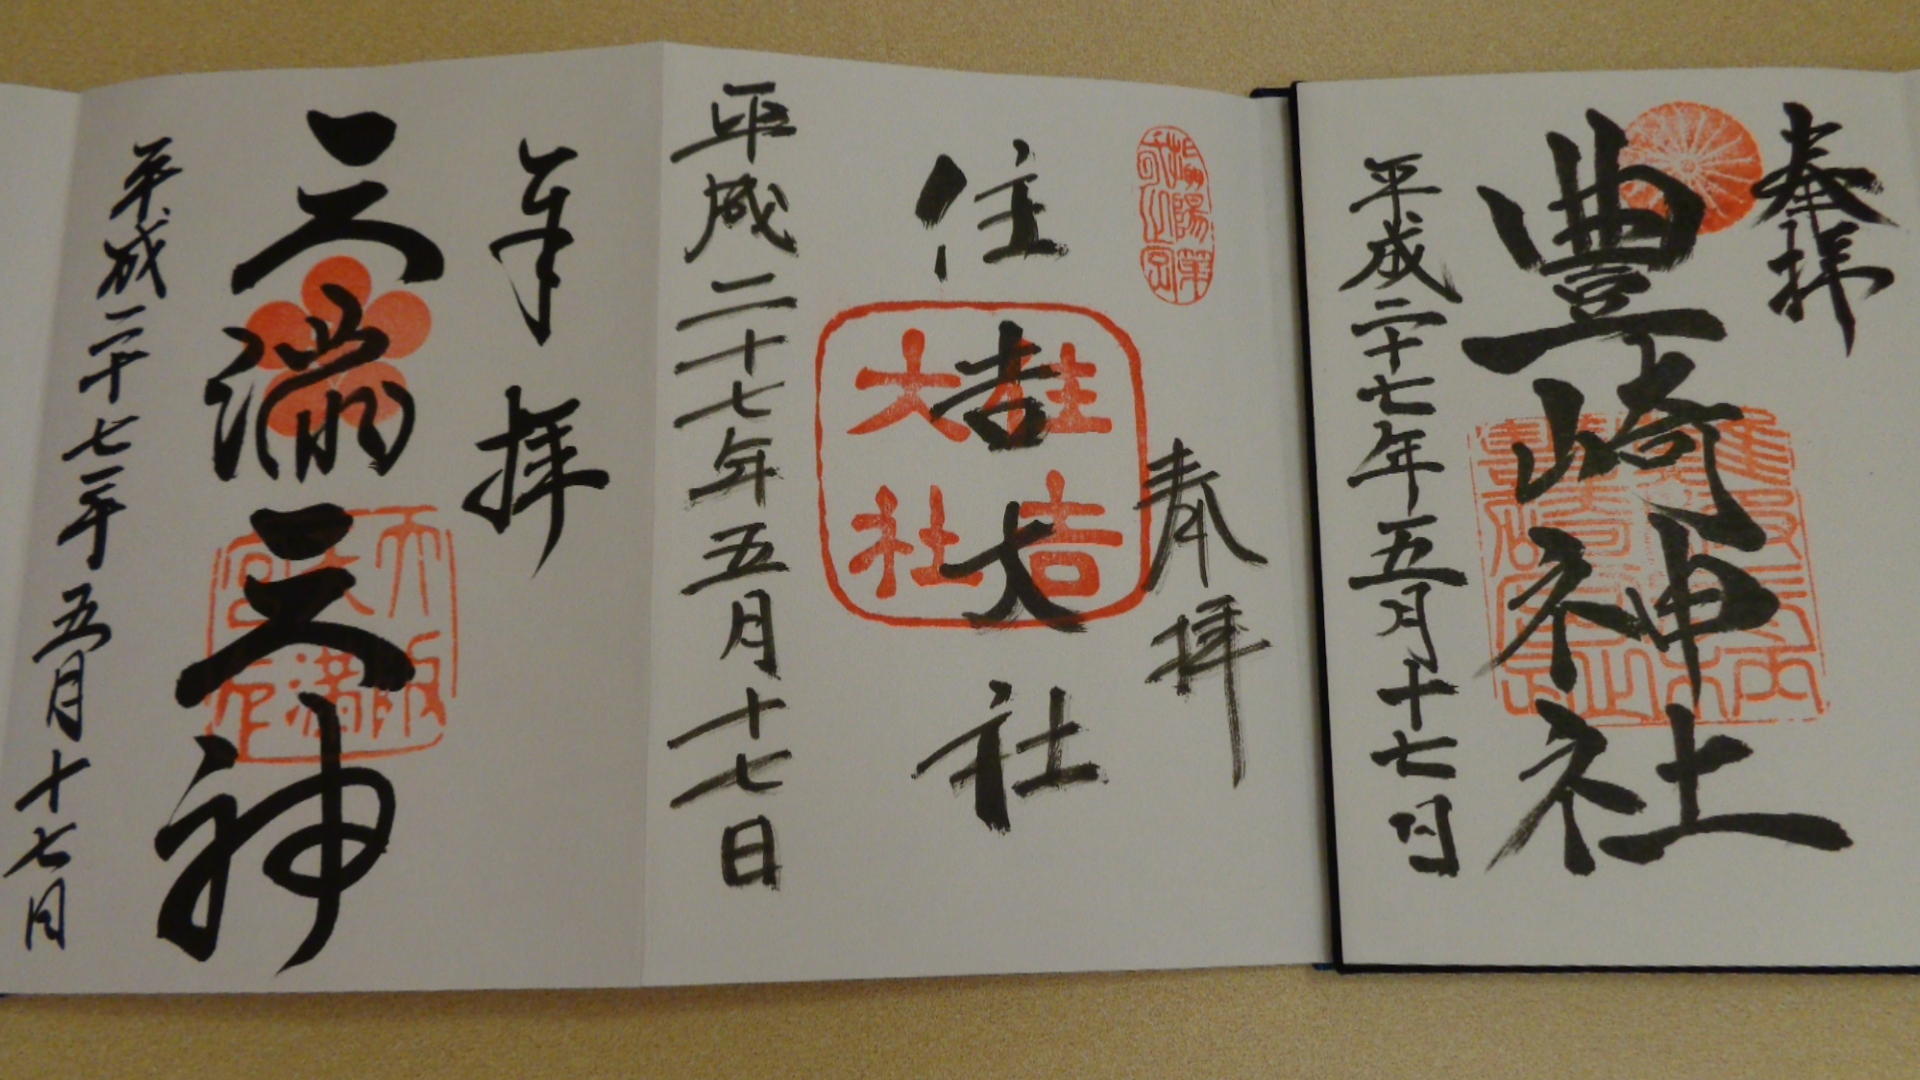 奉拝
豊崎神社
平成二十七年五月十七日
奉拝
住吉大社
住吉大社
平成二十七年五月十七日
奉拝
天満天神
大阪天満宮印
平成二十七年五月十七日